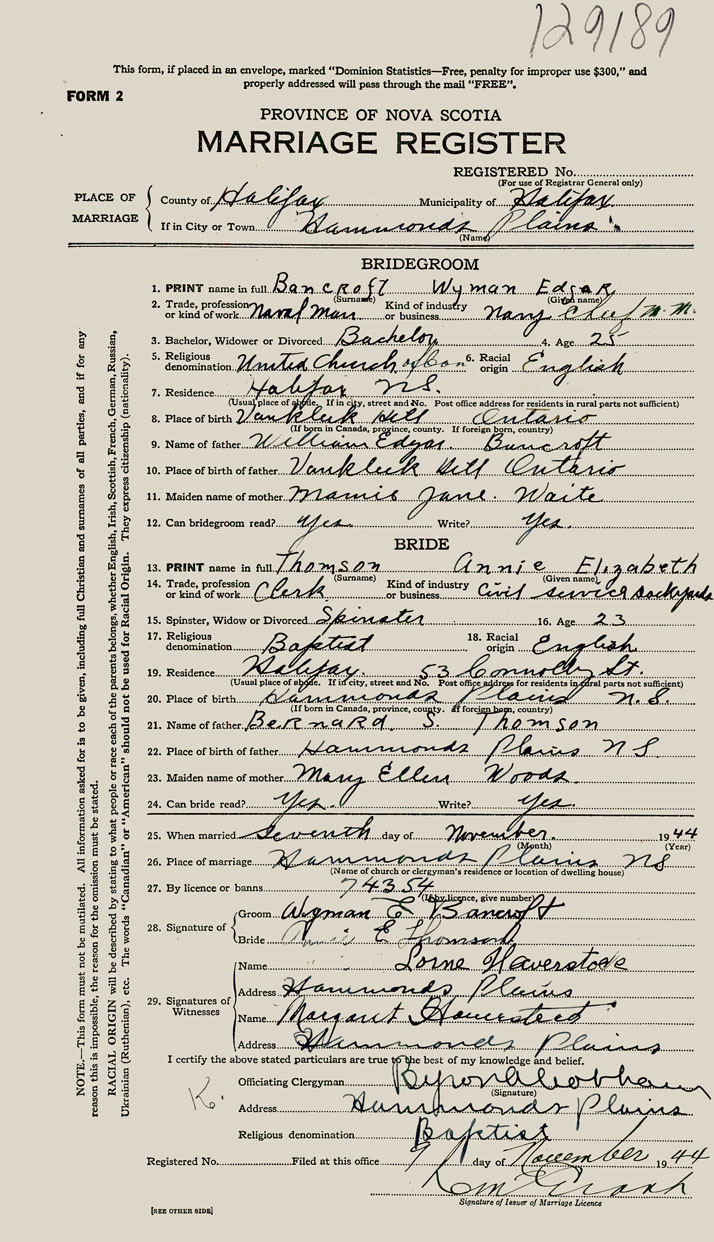 129189
This form, if placed in an envelope, marked “Dominion Statistics—Free, penalty for improper use $300,” and
properly addressed will pass through the mail “FREE”.
FORM 2
PROVINCE OF NOVA SCOTIA
MARRIAGE REGISTER
REGISTERED No.
(For use of Registrar General only)
PLACE OF MARRIAGE
County of Halifax Municipality of Halifax
If in City or Town Hammonds Plains
(Name)
BRIDEGROOM
1. PRINT name in full Bancroft Wyman Edgar
(Surname) (Given name)
2. Trade, profession or kind of work Naval Man Kind of industry or business Navy Chief M. M.
3. Bachelor, Widower or Divorced Bachelor 4. Age 25
5. Religious denomination United Church of Can 6. Racial origin English
7. Residence Halifax N.S.
(Usual place of abode. If in city, street and No. Post office address for residents in rural parts not sufficient)
8. Place of birth Vankleek Hill Ontario
(If born in Canada, province, county. If foreign born, country)
9. Name of father William Edgar Bancroft
10. Place of birth of father Vankleek Hill Ontario
11. Maiden name of mother Mamie Jane Waite
12. Can bridegroom read? Yes Write? Yes.
BRIDE
13. PRINT name in full Thomson Annie Elizabeth
(Surname) (Given name)
14. Trade, profession or kind of work Clerk Kind of industry or business Civil service Dockyards
15. Spinster, Widow or Divorced Spinster 16. Age 23
17. Religious denomination Baptist 18. Racial origin English
19. Residence Halifax 53 Connolly St.
(Usual place of abode. If in city, street and No. Post office address for residents in rural parts not sufficient)
20. Place of birth Hammonds Plains N.S.
(If born in Canada, province, county. If foreign born, country)
21. Name of father Bernard S. Thomson
22. Place of birth of father Hammonds Plains NS
23. Maiden name of mother Mary Ellen Woods
24. Can bride read? Yes. Write? Yes.
25. When married seventh day of November. 1944
(Month) (Year)
26. Place of marriage Hammonds Plains NS
(Name of church or clergyman's residence or location of dwelling house)
27. By licence or banns 74354
(If by licence, give number)
28. Signature of
Groom Wyman E Bancroft
Bride Annie E Thomson
29. Signatures of Witnesses
Name Lorne Haverstock
Address Hammonds Plains
Name Margaret Haverstock
Address Hammonds Plains
I certify the above stated particulars are true to the best of my knowledge and belief.
Officiating Clergyman Byron
(Signature)
K.
Address Hammonds Plains
Religious denomination Baptist
Registered No. Filed at this office 9 day of November 1944
Signature of Issuer of Marriage Licence
[SEE OTHER SIDE]
NOTE.—This form must not be mutilated. All information asked for is to be given, including full Christian and surnames of all parties, and if for any
reason this is impossible, the reason for the omission must be stated.
RACIAL ORIGIN will be described by stating to what people or race each of the parents belongs, whether English, Irish, Scottish, French, German, Russian,
Ukrainian (Ruthenian), etc. The words “Canadian” or “American” should not be used for Racial Origin. They express citizenship (nationality).